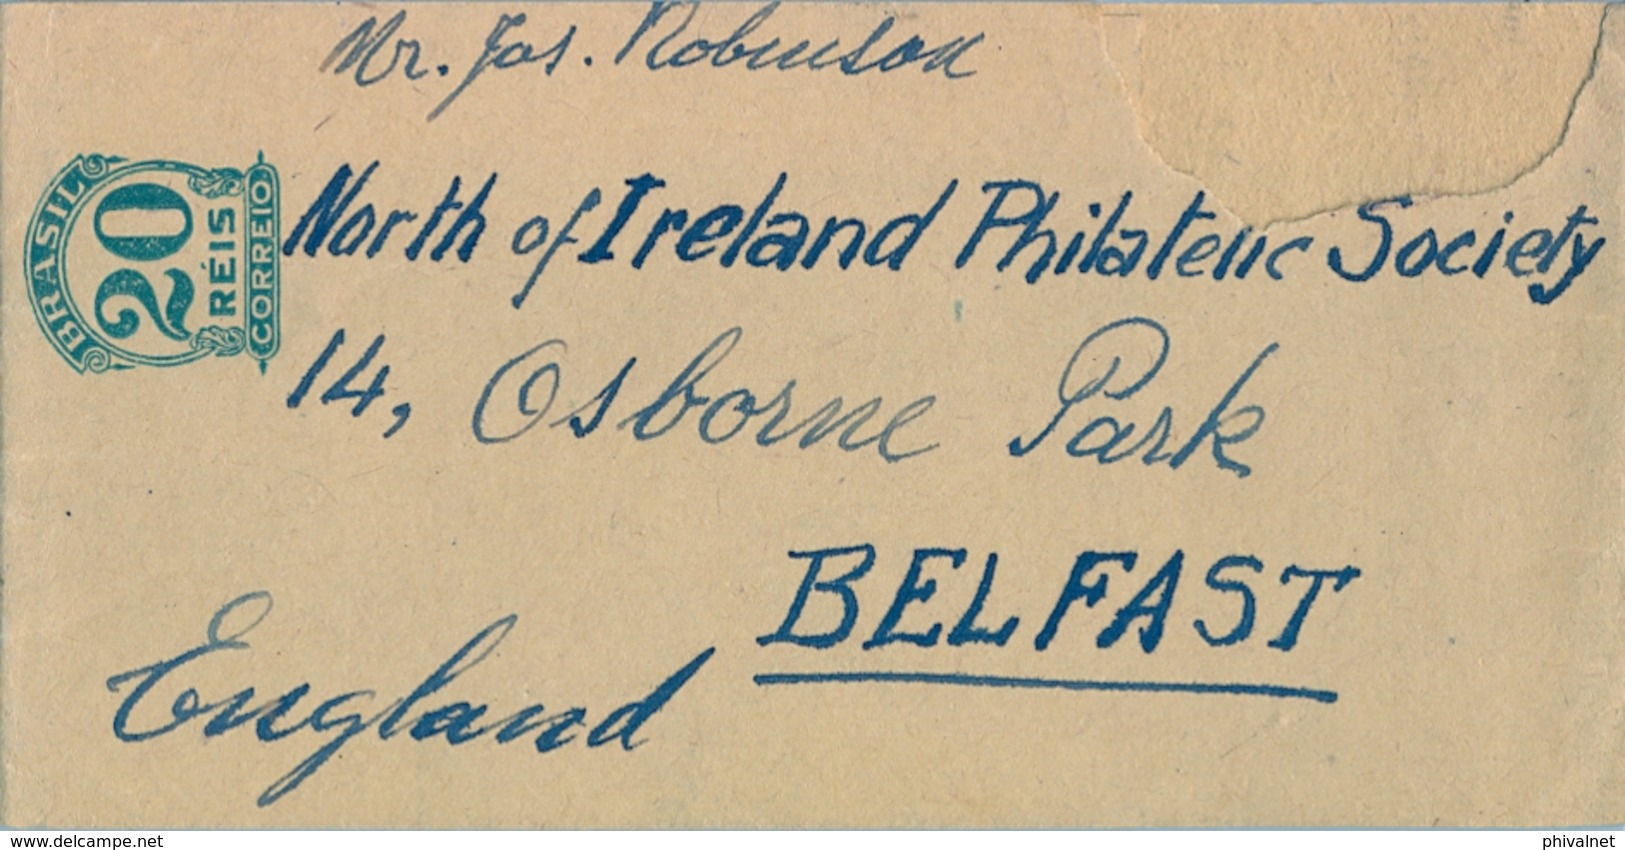 Mr. Jas. Robinson
BRASIL
20
RÉIS
CORREIO
North of Ireland Philatelic Society
14, Osborne Park
BELFAST
England
www.delcampe.net
phivalnet